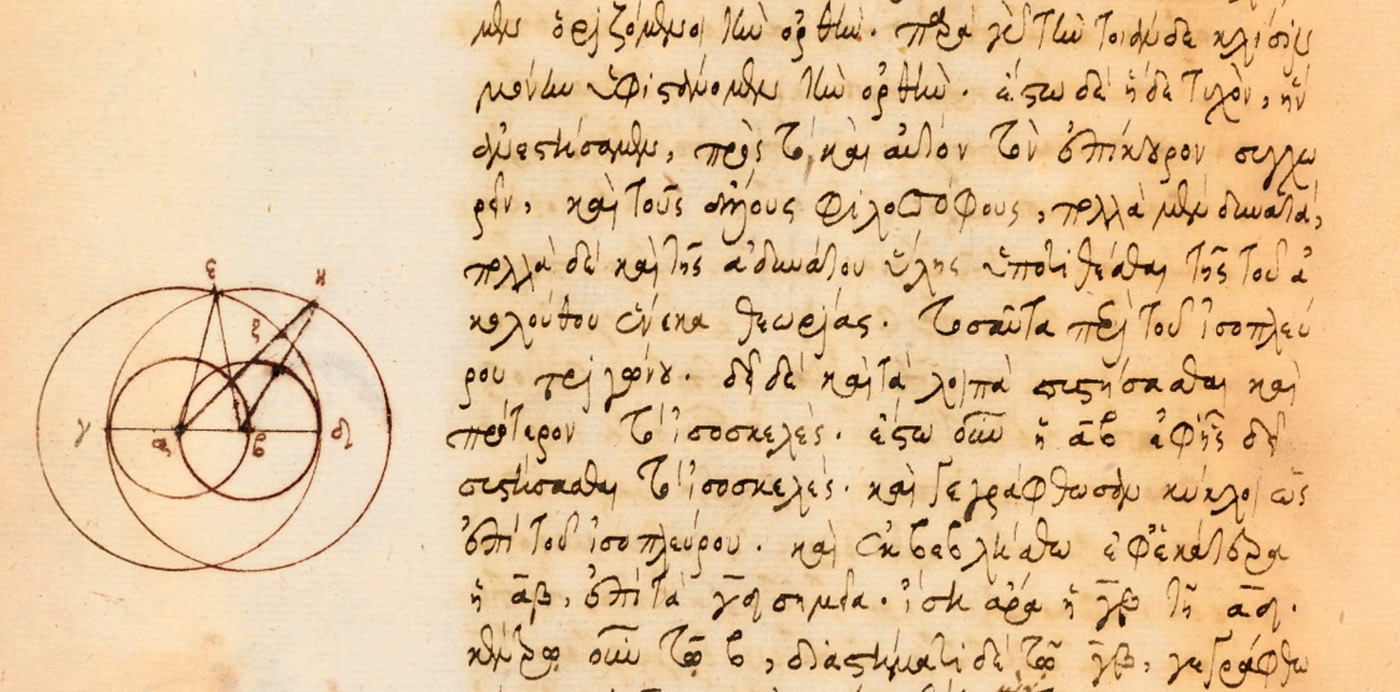 μὲν ὁριζόμενοι τὴν ὀρθήν. παρὰ γὰρ τὴν τοιάνδε κλίσιν
μόνην ὑφιστάνομεν τὴν ὀρθήν. ἔστω δὲ ἡ δὲ τυχὸν, ἣν
συνεστήσαμεν, πρὸς τὸ καὶ αὐτὸν τὸν ἐπίκουρον συγχω
ρεῖν, καὶ τοὺς ἄλλους φιλοσόφους, πολλὰ μὲν δυνατὰ,
πολλὰ δὲ καὶ τῆς ἀδυνάτου ὕλης ὑποτίθεσθαι τῆς τοῦ ἀ
κολούθου ἕνεκα θεωρίας. τοσαῦτα περὶ τοῦ ἰσοπλεύ
ρου τριγώνου. δεῖ δὲ καὶ τὰ λοιπὰ συστήσασθαι καὶ
πρότερον τὸ ἰσοσκελές. ἔστω οὖν ἡ αβ ἐφ' ἧς δεῖ
συστήσασθαι τὸ ἰσοσκελές. καὶ γεγράφθωσαν κύκλοι ὡς
ἐπὶ τοῦ ἰσοπλεύρου. καὶ ἐκβεβλήσθω ἐφ' ἑκάτερα
ἡ αβ, ἐπὶ τὰ γδ σημεῖα. ἴση ἄρα ἡ γβ τῇ αδ.
κέντρῳ οὖν τῷ β, διαστήματι δὲ τῷ γβ, γεγράφθω
ε
κ
ζ
γ
α
β
δ